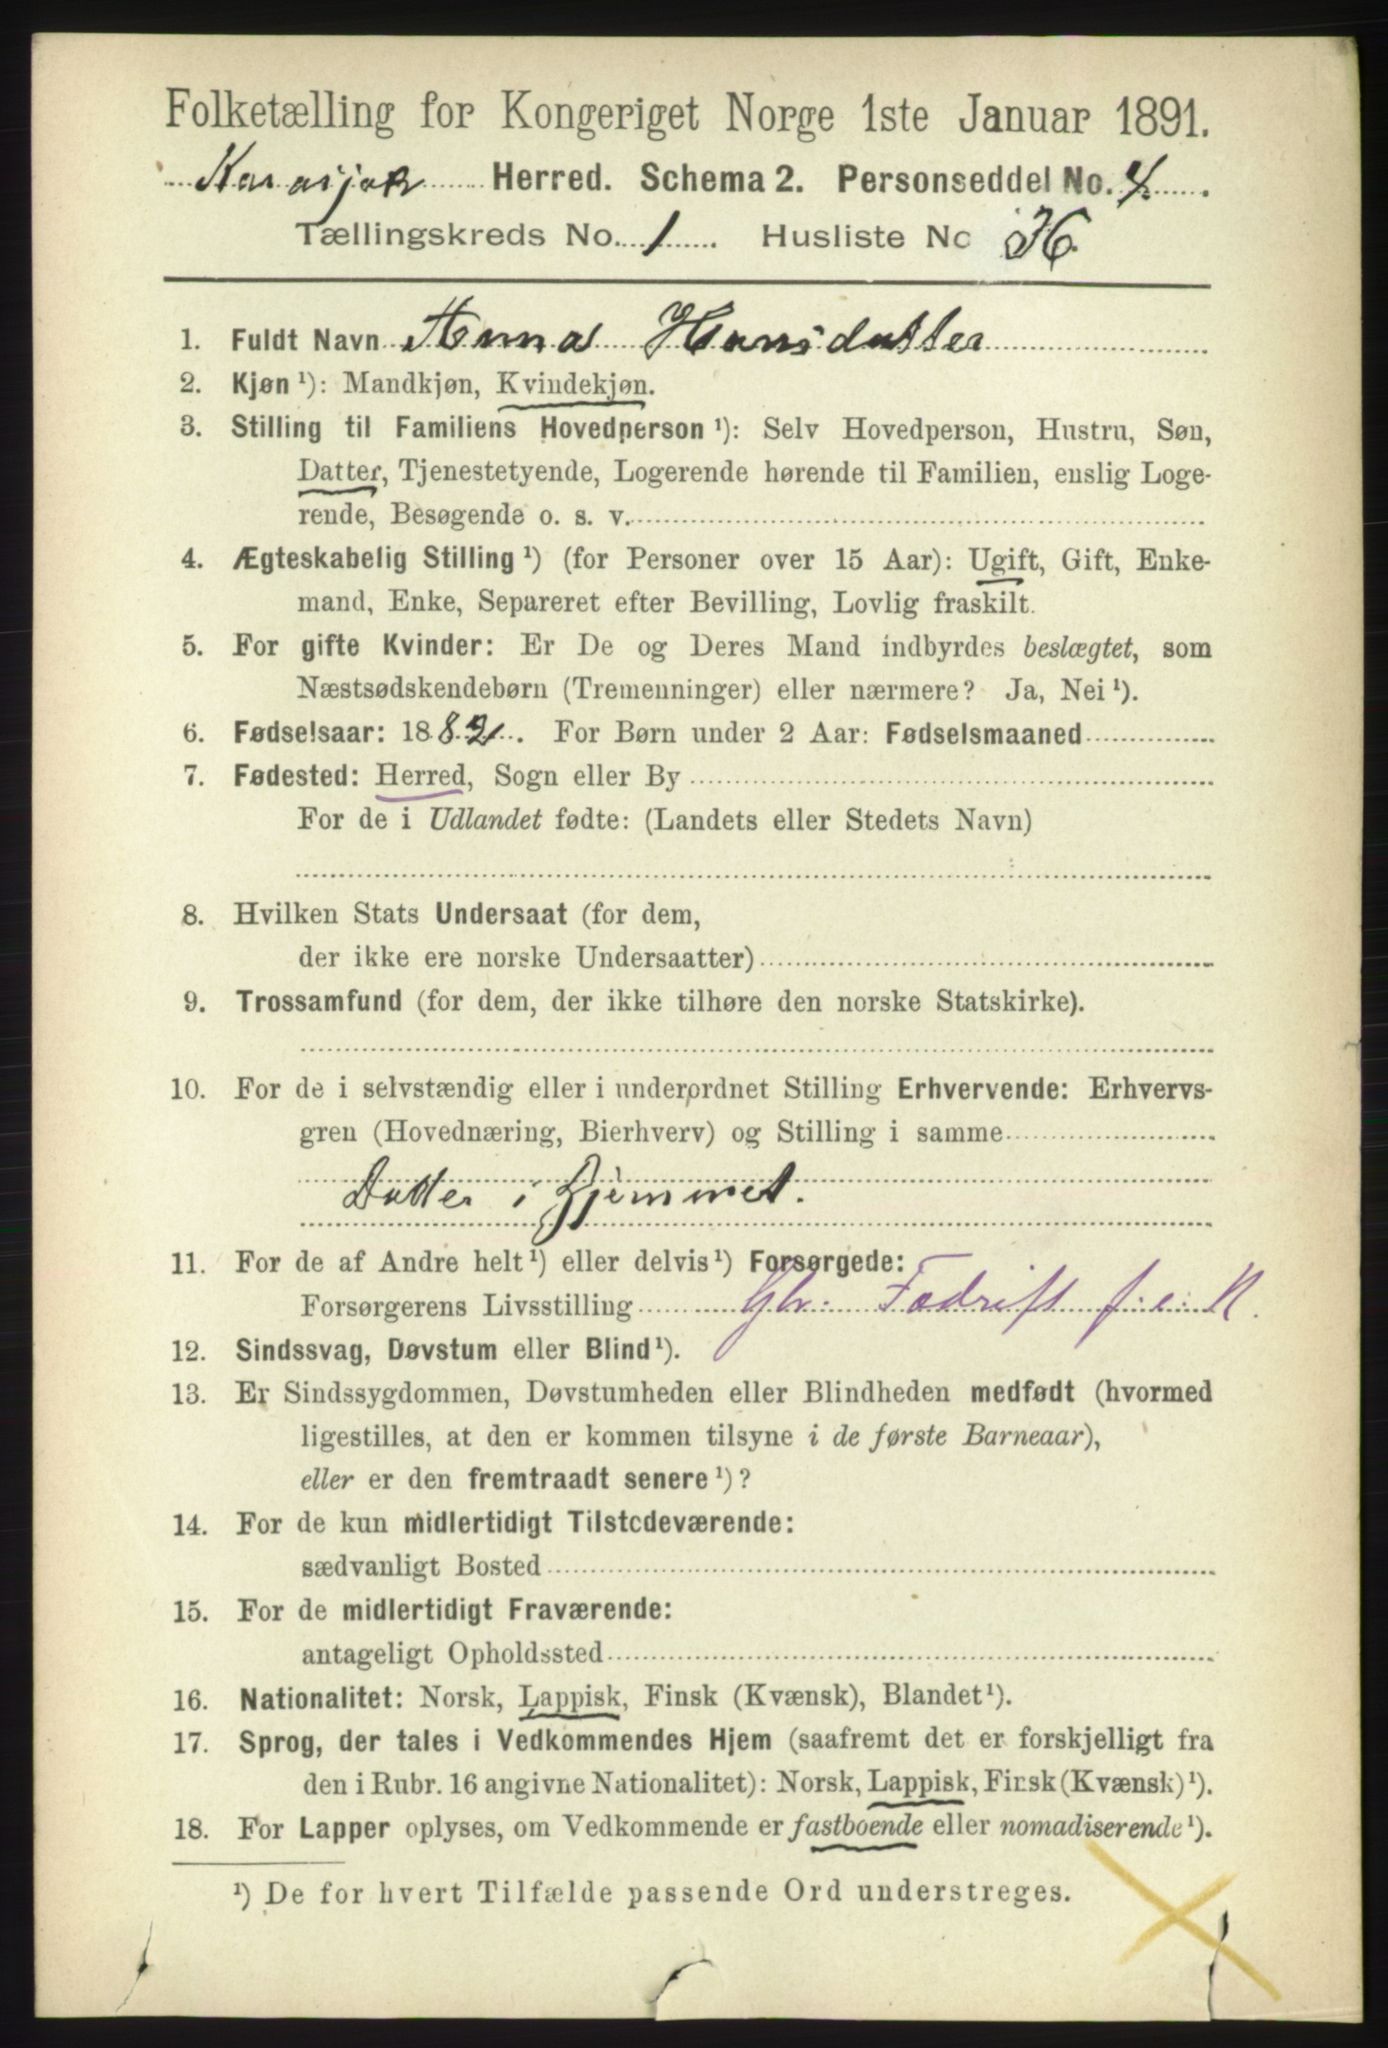 Folketælling for Kongeriget Norge 1ste Januar 1891.
Karasjok Herred. Schema 2. Personseddel No. 4.
Tællingskreds No. 1. Husliste No
1. Fuldt Navn Anna Hansdatter
2. Kjøn ¹): Mandkjøn, Kvindekjøn.
3. Stilling til Familiens Hovedperson ¹): Selv Hovedperson, Hustru, Søn,
Datter, Tjenestetyende, Logerende hørende til Familien, enslig Loge-
rende, Besøgende o. s. v.
4. Ægteskabelig Stilling ¹) (for Personer over 15 Aar): Ugift, Gift, Enke-
mand, Enke, Separeret efter Bevilling, Lovlig fraskilt.
5. For gifte Kvinder: Er De og Deres Mand indbyrdes beslægtet, som
Næstsødskendebørn (Tremenninger) eller nærmere? Ja, Nei ¹).
6. Fødselsaar: 18 . For Børn under 2 Aar: Fødselsmaaned
7. Fødested: Herred, Sogn eller By
For de i Udlandet fødte: (Landets eller Stedets Navn)
8. Hvilken Stats Undersaat (for dem,
der ikke ere norske Undersaatter)
9. Trossamfund (for dem, der ikke tilhøre den norske Statskirke).
10. For de i selvstændig eller i underordnet Stilling Erhvervende: Erhvervs-
gren (Hovednæring, Bierhverv) og Stilling i samme
Datter i Hjemmet.
11. For de af Andre helt ¹) eller delvis ¹) Forsørgede:
Forsørgerens Livsstilling Fædrift f. e. R.
12. Sindssvag, Døvstum eller Blind ¹).
13. Er Sindssygdommen, Døvstumheden eller Blindheden medfødt (hvormed
ligestilles, at den er kommen tilsyne i de første Barneaar),
eller er den fremtraadt senere ¹)?
14. For de kun midlertidigt Tilstedeværende:
sædvanligt Bosted
15. For de midlertidigt Fraværende:
antageligt Opholdssted
16. Nationalitet: Norsk, Lappisk, Finsk (Kvænsk), Blandet ¹).
17. Sprog, der tales i Vedkommendes Hjem (saafremt det er forskjelligt fra
den i Rubr. 16 angivne Nationalitet): Norsk, Lappisk, Finsk (Kvænsk) ¹).
18. For Lapper oplyses, om Vedkommende er fastboende eller nomadiserende ¹).
¹) De for hvert Tilfælde passende Ord understreges.